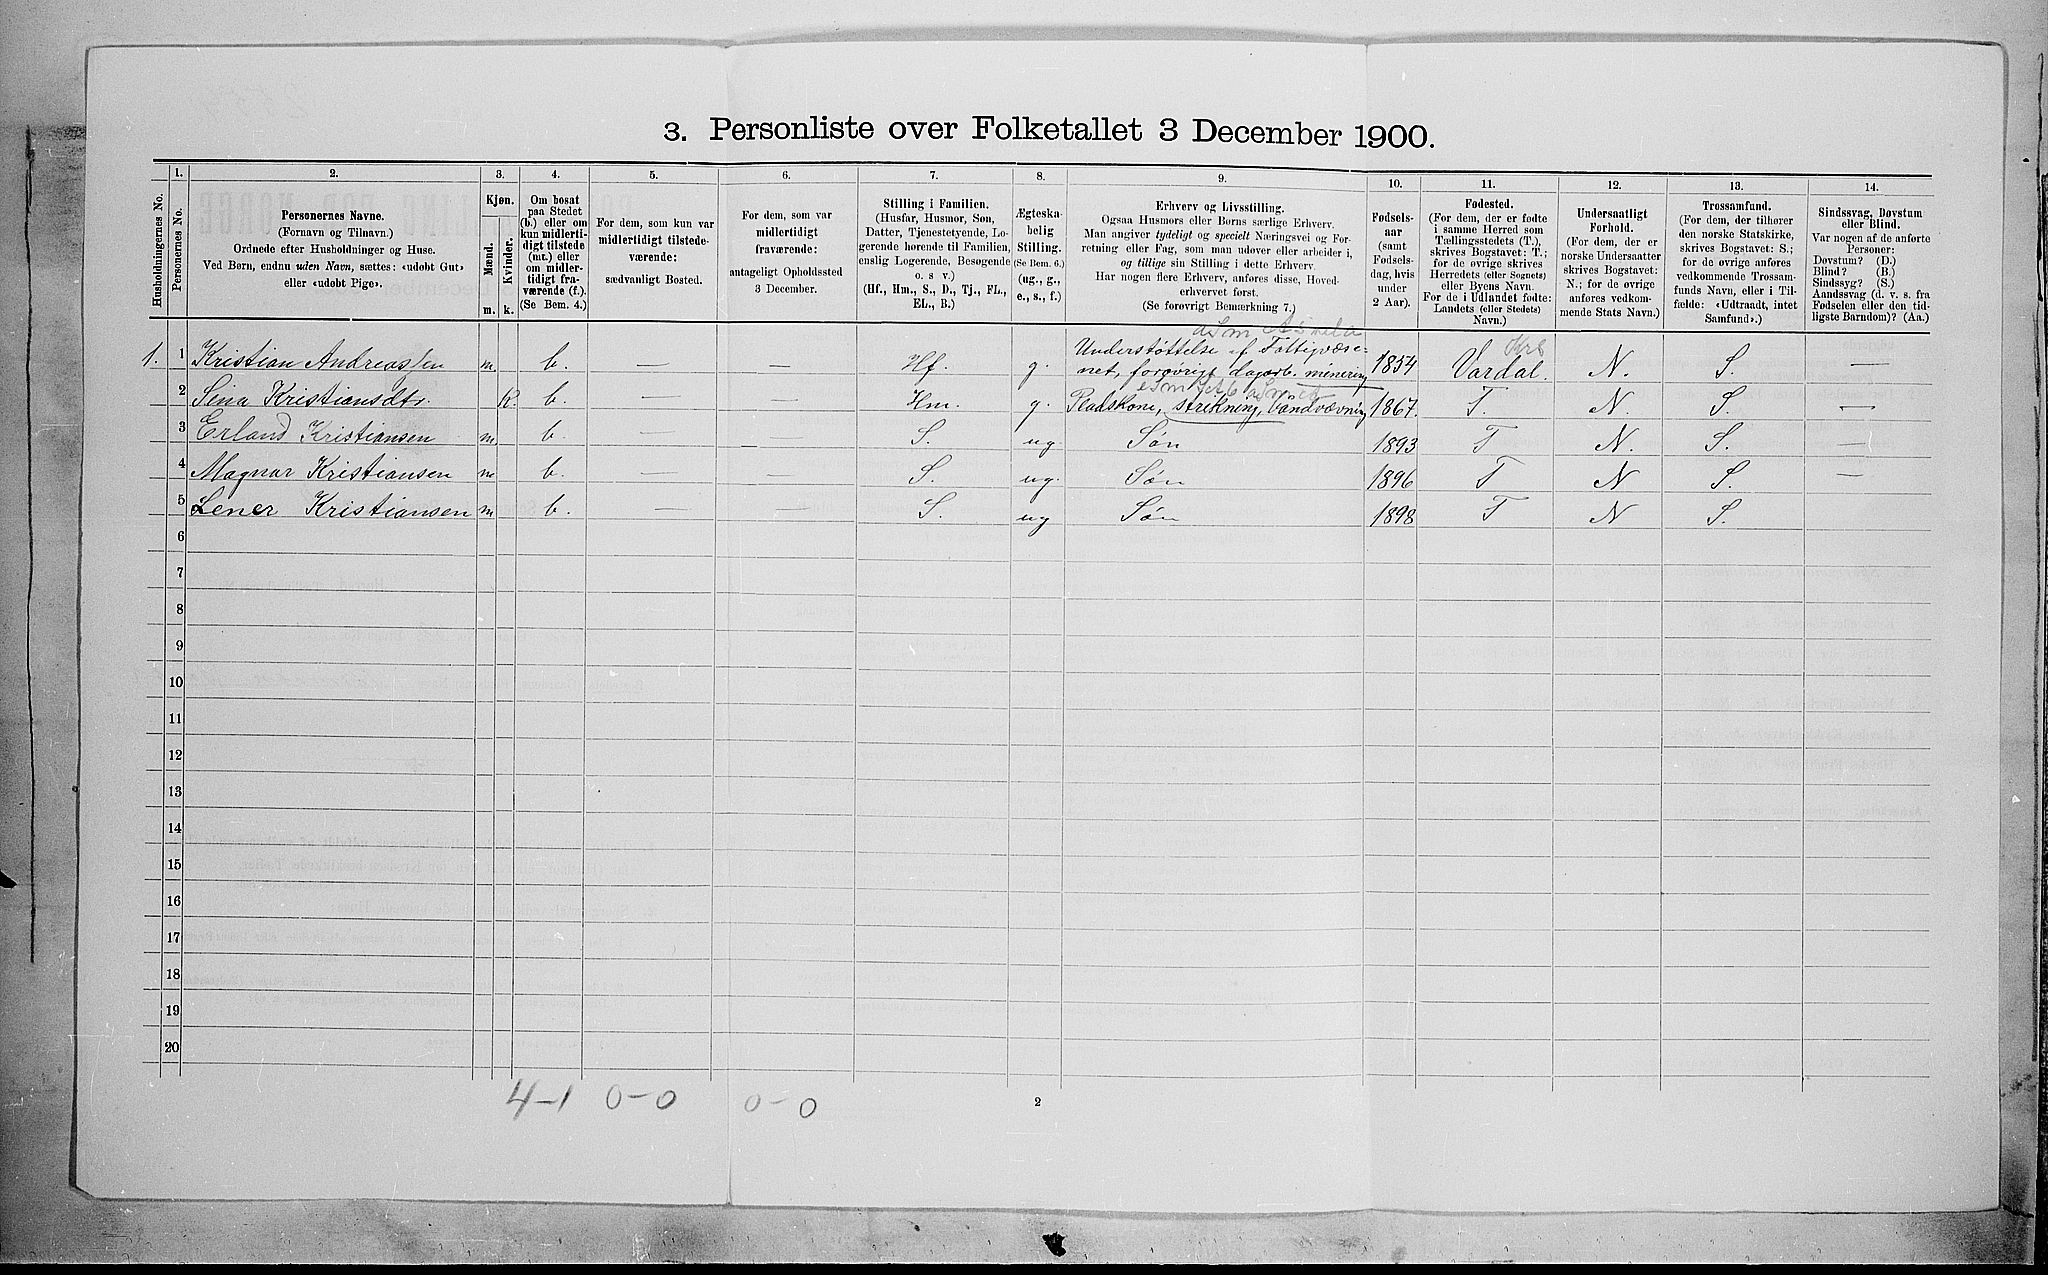 3. Personliste over Folketallet 3 December 1900.
Husholdningernes No.
1.
Personernes No.
2.
Personernes Navne.
(Fornavn og Tilnavn.)
Ordnede efter Husholdninger og Huse.
Ved Børn, endnu uden Navn, sættes: «udøbt Gut»
eller «udøbt Pige».
3.
Kjøn.
Mænd.
Kvinder.
m. k.
4.
Om bosat
paa Stedet
(b.) eller om
kun midlerti-
digt tilstede
(mt.) eller
om midler-
tidigt fra-
værende (f.).
(Se Bem. 4.)
5.
For dem, som kun var
midlertidigt tilstede-
værende:
sædvanligt Bosted.
6.
For dem, som var
midlertidigt
fraværende:
antageligt Opholdssted
3 December.
7.
Stilling i Familien.
(Husfar, Husmor, Søn,
Datter, Tjenestetyende, Lo-
gerende hørende til Familien,
enslig Logerende, Besøgende
o. s v.)
(Hf., Hm., S., D., Tj., FL.,
EL., B.)
8.
Ægteska-
belig
Stilling.
(Se Bem. 6.)
(ug., g.,
e., s., f.)
9.
Erhverv og Livsstilling.
Ogsaa Husmors eller Børns særlige Erhverv.
Man angiver tydeligt og specielt Næringsvei og For-
retning eller Fag, som man udøver eller arbeider i,
og tillige sin Stilling i dette Erhverv.
Har nogen flere Erhverv, anføres disse, Hoved-
erhvervet først.
(Se forøvrigt Bemærkning 7.)
10.
Fødsels-
aar
(samt
Fødsels-
dag, hvis
under
2 Aar).
11.
Fødested.
(For dem, der er fødte
i samme Herred som
Tællingsstedets (T.),
skrives Bogstavet: T.;
for de øvrige skrives
Herredets (eller Sognets)
eller Byens Navn.
For de i Udlandet fødte:
Landets (eller Stedets)
Navn.)
12.
Undersaatligt
Forhold.
(For dem, der er
norske Undersaatter
skrives Bogstavet:
N.; for de øvrige
anføres vedkom-
mende Stats Navn.)
13.
Trossamfund.
(For dem, der tilhører
den norske Statskirke,
skrives Bogstavet: S.;
for de øvrige anføres
vedkommende Trossam-
funds Navn, eller i Til-
fælde: «Udtraadt, intet
Samfund».)
14.
Sindssvag, Døvstum
eller Blind.
Var nogen af de anførte
Personer:
Døvstum? (D.)
Blind? (B.)
Sindssyg? (S.)
Aandssvag (d. v. s. fra
Fødselen eller den tid-
ligste Barndom)? (Aa.)
1. 1 Kristian Andreassen m. b. — — Hf. g. Understøttelse af Fattigvæse-
net, forøvrigt dagarb. minering 1854 Vardal. N. S. —
2 Sina Kristiansdtr. k. b. — — Hm. g. Pladskone, strikning, baandvævning 1867. T. N. S. —
3 Erland Kristiansen m. b. — — S. ug. Søn 1893 T N. S. —
4 Magnar Kristiansen m b. — — S. ug. Søn 1896 T N S. —
5 Lener Kristiansen m b. — — S. ug Søn 1898 T N S.
6
7
8
9
10
11
12
13
14
15
16
17
18
19
20
4-1 0-0 0-0
2